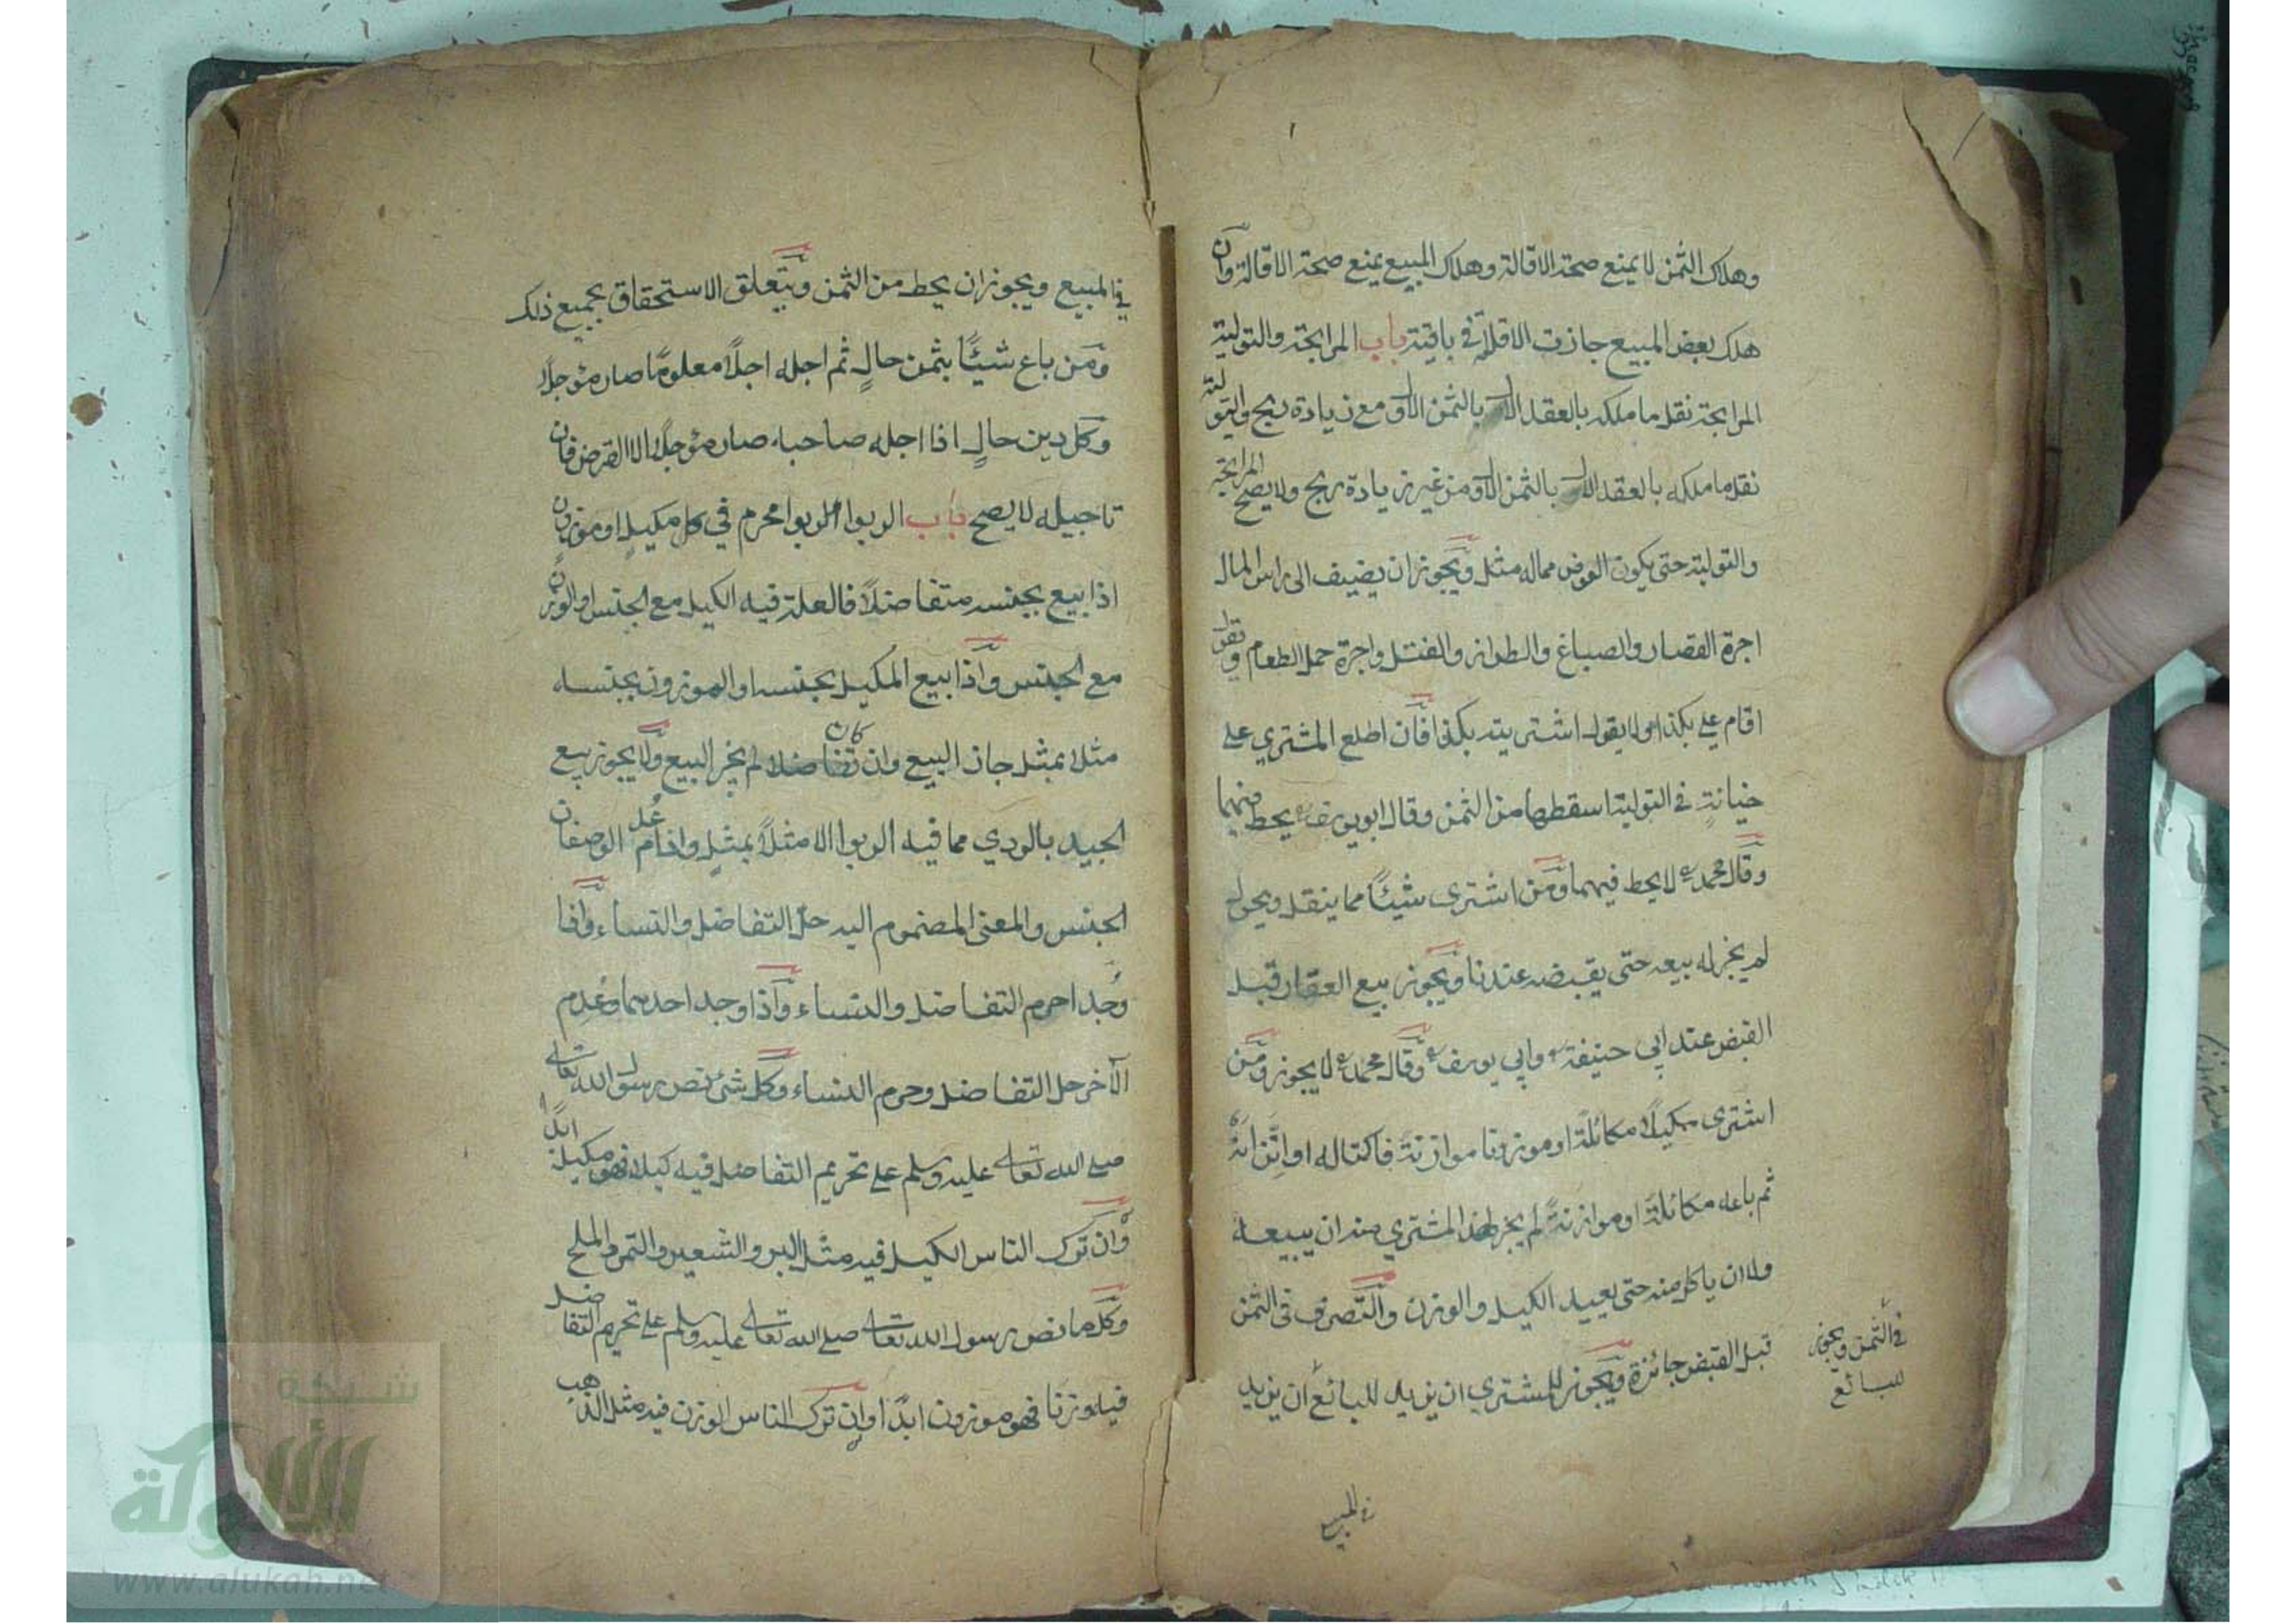 وهلاك الثمن لا يمنع صحة الاقالة وهلاك المبيع يمنع صحة الاقالة وان
هلك بعض المبيع جازت الاقالة في باقيته باب المرابحة والتولية
المرابحة نقل ما ملكه بالعقد الاول بالثمن الاول مع زيادة ربح والتولية
نقل ما ملكه بالعقد الاول بالثمن الاول من غير زيادة ربح ولا يصح المرابحة
والتولية حتى يكون العوض مماله مثل ويجوز ان يضيف الى راس المال
اجرة القصار والصباغ والطراز والفتل واجرة حمل الطعام ويقول
اقام علي بكذا ولا يقول اشتريته بكذا فان اطلع المشتري على
خيانة في التولية اسقطها من الثمن وقال ابويوسف يحط فيهما
وقال محمد لا يحط فيهما ومن اشترى شيئًا مما ينقل ويحول
لم يجز له بيعه حتى يقبضه عندنا ويجوز بيع العقار قبل
القبض عند ابي حنيفة وابي يوسف وقال محمد لا يجوز ومن
اشترى مكيلًا مكائلةً او موزونا موازنةً فاكتاله او اتزانهُ
ثم باعه مكائلةً او موازنةً لم يجز لهذا المشتري منه ان يبيعه
ولا ان ياكل منه حتى يعيد الكيل والوزن والتصرف في الثمن
قبل القبض جائزة ويجوز للمشتري ان يزيد للبائع ان يزيد
في الثمن ويجوز
للبائع
في المبيع
في المبيع ويجوز ان يحط من الثمن ويتعلق الاستحقاق بجميع ذلك
ومن باع شيئًا بثمن حالٍ ثم اجله اجلًا معلومًا صار مؤجلًا
وكل دين حالٍ اذا اجله صاحبه صار مؤجلًا الا القرض فان
تاجيله لا يصح باب الربوا الربوا محرم في كل مكيلٍ او موزون
اذا بيع بجنسه متفاضلًا فالعلة فيه الكيل مع الجنس او الوزن
مع الجنس واذا بيع المكيل بجنسه او الموزون بجنسه
مثلا بمثل جاز البيع وان كان تفاضلا لم يجز البيع ولا يجوز بيع
الجيد بالردي مما فيه الربوا الا مثلًا بمثلٍ واذا عُدم الوصفان
الجنس والمعنى المضموم اليه حل التفاضل والنساء واذا
وُجدا حرم التفاضل والنساء واذا وجد احدهما وعُدِم
الآخر حل التفاضل وحرم النساء وكل شئ نص رسول الله تعالى
صلى الله تعالى عليه وسلم على تحريم التفاضل فيه كيلا فهو مكيل ابدًا
وان ترك الناس الكيل فيه مثل البر والشعير والتمر والملح
وكل ما نص رسول الله تعالى صلى الله تعالى عليه وسلم على تحريم التفاضل
فيه وزنا فهو موزون ابدًا وان ترك الناس الوزن فيه مثل الذهب
شبكة
الألوكة
www.alukah.net